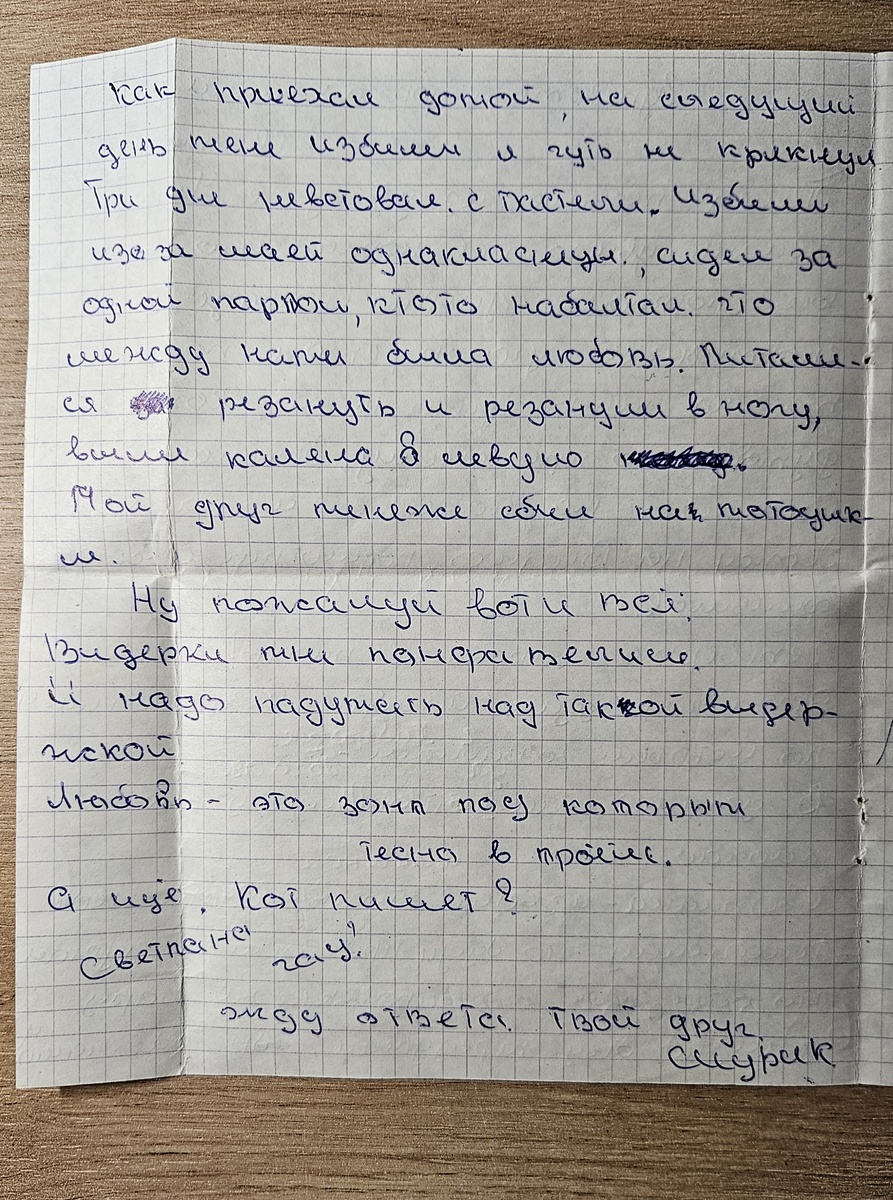 Как приехал домой, на следущий
день меня избили я чуть не крякнул
Три дня невставал. с пастели. Избили
изо за маей однакласницы., сидел за
одной партой, ктото набалтал. что
между нами была любовь. Питали-
ся резануть и резанули в ногу,
выше калена в левую
Мой друг меняже сбил на мотоцик-
ли.
Ну пожалуй вот и всё.
Видерки мне панаравелись.
И надо падумать над такой видер-
жской
Любовь - это зонт под которым
тесна в троём.
А ище. Кот пишет?
Светлана чау!
жду ответа. Твой друг.
Шурик